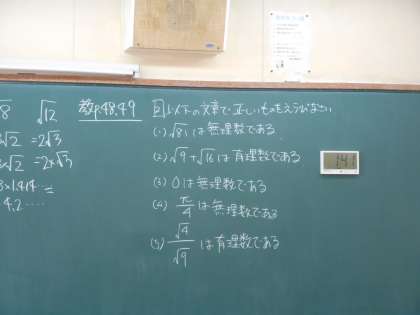 √12
教p.48.49
√2 =2√3
√2 =2×√3
×1.414 =
4.2....
問 以下の文章で正しいものをえらびなさい
(1) √81は無理数である
(2) √9+√16は有理数である
(3) 0は無理数である
(4) π/4は無理数である
(5) √4/√9は有理数である
1:41